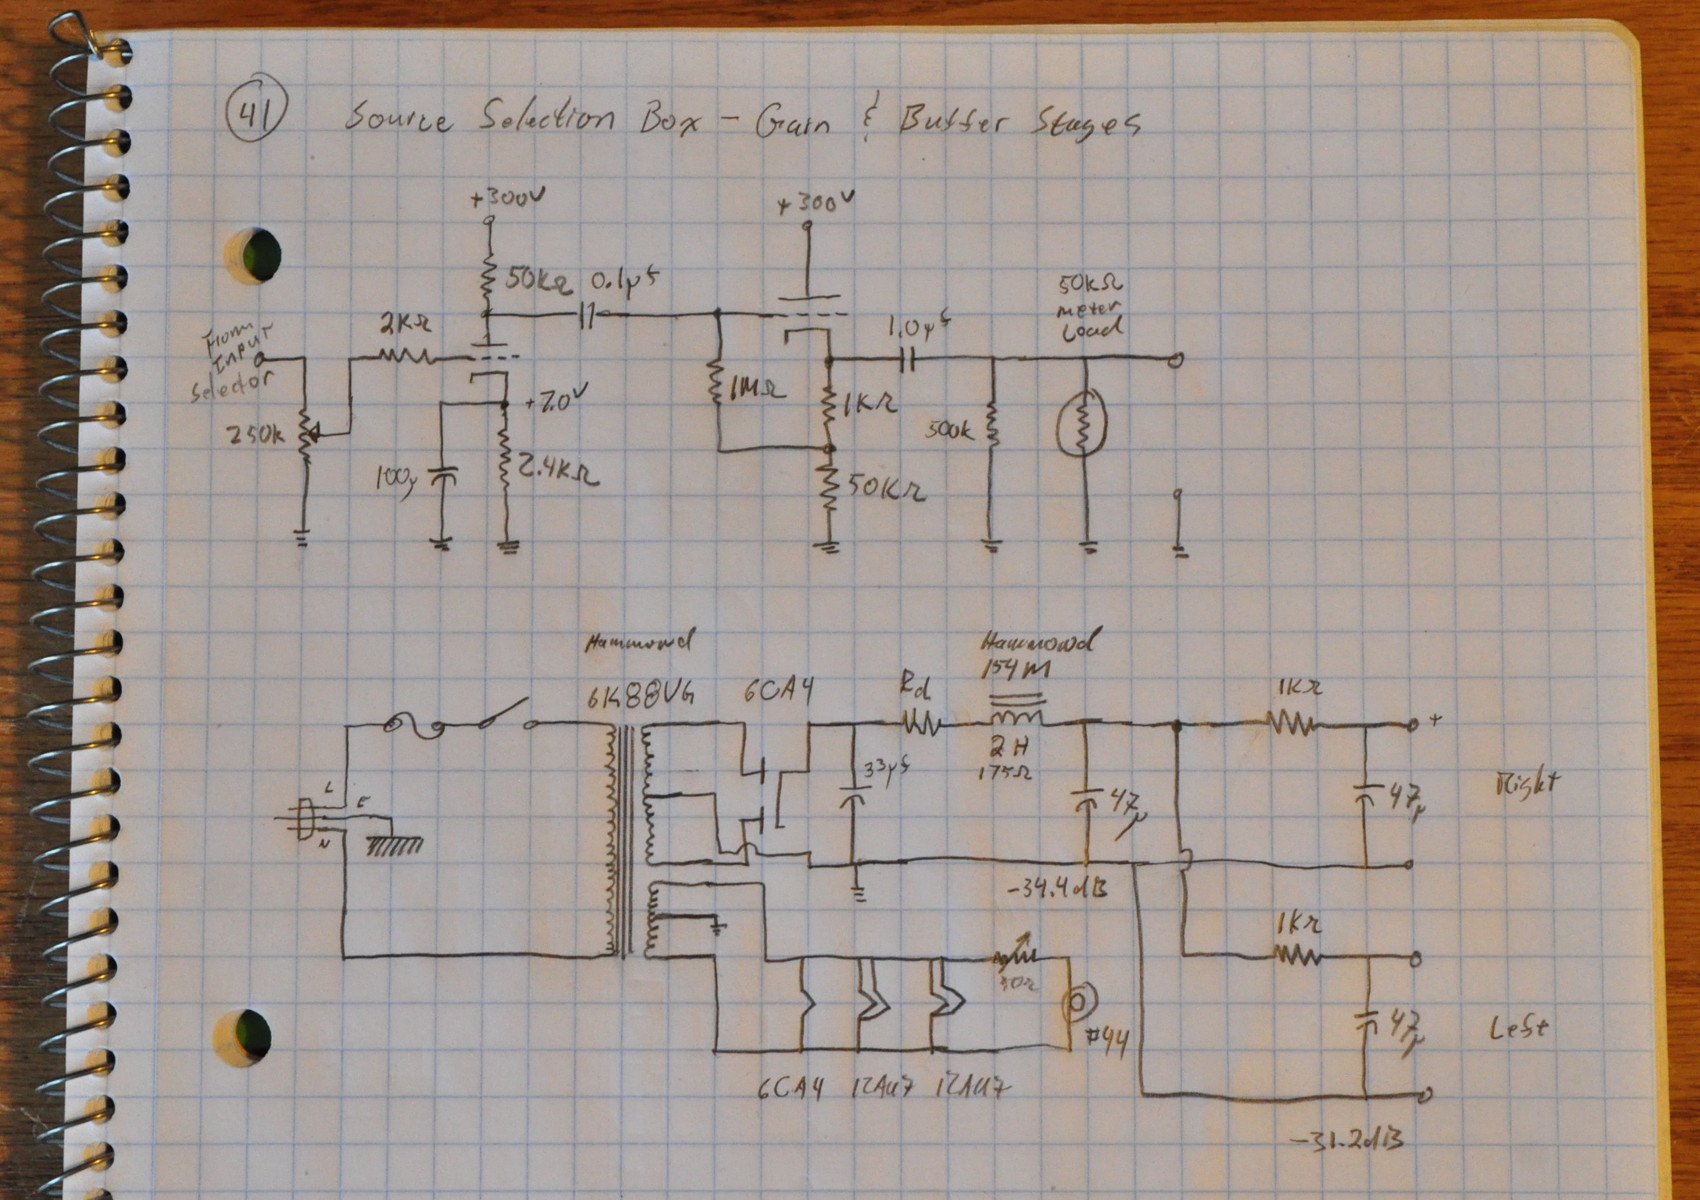 41 Source Selection Box - Gain & Buffer Stages
+300V
+300V
50kΩ
0.1μf
50kΩ
meter
Load
From
Input
Selector
2KΩ
1.0μf
250k
+7.0V
1MΩ
1KΩ
500k
100μ
2.4KΩ
50KΩ
Hammond
Hammond
154M
6K88VG
6CA4
Rd
1KΩ
+
2H
175Ω
33μf
L
E
N
47μ
47μ
Right
-34.4dB
1KΩ
#44
47μ
Left
6CA4 12AU7 12AU7
-31.2dB